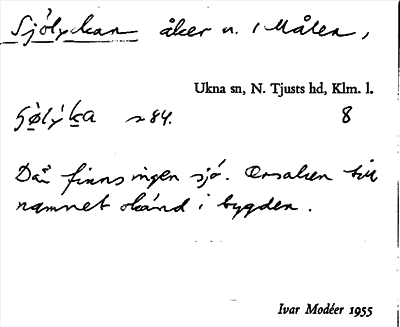 Sjölyckan åker n. i Målen,
Ukna sn, N. Tjusts hd, Klm. l.
s 84. 8
Där finns ingen sjö. Orsaken till
namnet okänd i bygden.
Ivar Modéer 1955